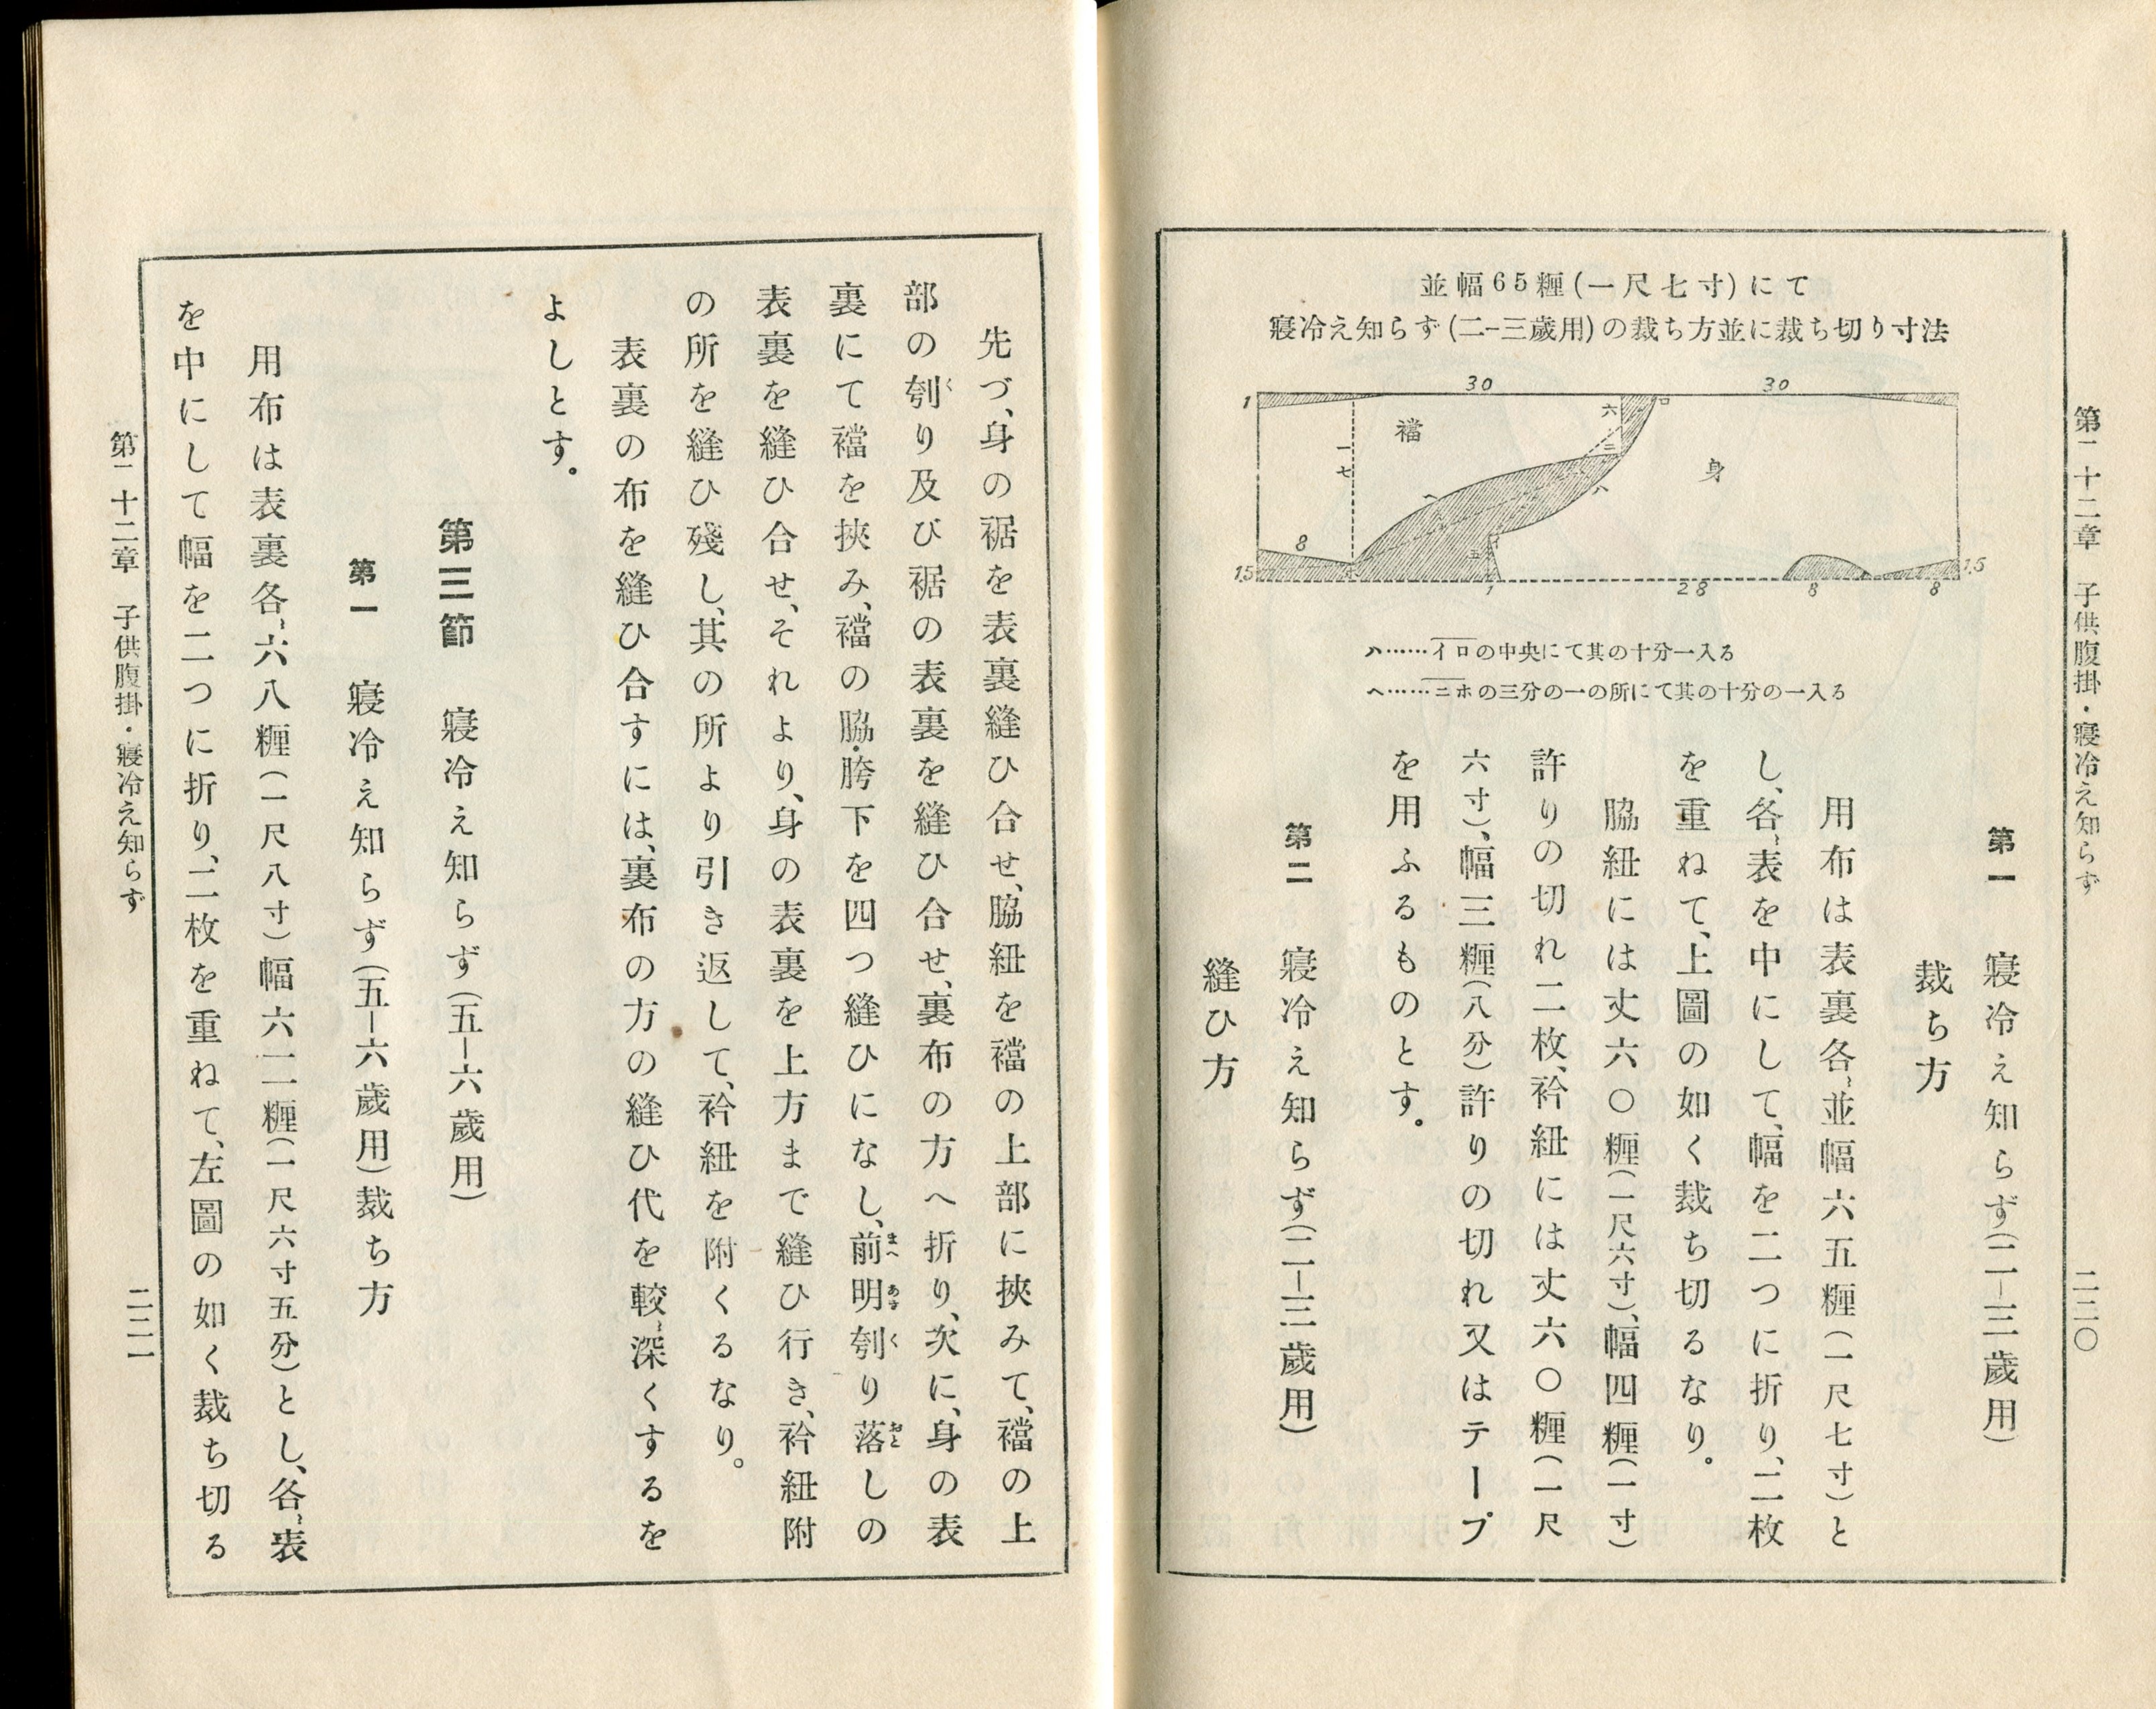 第二十二章　子供腹掛・寢冷え知らず
二二〇
並幅65糎(一尺七寸)にて
寢冷え知らず(二―三歲用)の裁ち方並に裁ち切り寸法
30
30
1
襠
一七
六
ロ
二
身
ヘ
ハ
8
15
1
28
8
8
1.5
ハ……イロの中央にて其の十分一入る
ヘ……ニホの三分の一の所にて其の十分の一入る
第一　寢冷え知らず(二―三歲用)
裁ち方
用布は表裏各〻並幅六五糎(一尺七寸)と
し、各〻表を中にして、幅を二つに折り、二枚
を重ねて、上圖の如く裁ち切るなり。
脇紐には丈六〇糎(一尺六寸)、幅四糎(一寸)
許りの切れ二枚、衿紐には丈六〇糎(一尺
六寸)、幅三糎(八分)許りの切れ又はテープ
を用ふるものとす。
第二　寢冷え知らず(二―三歲用)
縫ひ方
先づ、身の裾を表裏縫ひ合せ、脇紐を襠の上部に挾みて、襠の上
部の刳く り及び裾の表裏を縫ひ合せ、裏布の方へ折り、次に、身の表
裏にて襠を挾み、襠の脇・胯下を四つ縫ひになし、前まへ明あき刳く り落おと しの
表裏を縫ひ合せ、それより、身の表裏を上方まで縫ひ行き、衿紐附
の所を縫ひ殘し、其の所より引き返して、衿紐を附くるなり。
表裏の布を縫ひ合すには、裏布の方の縫ひ代を較〻深くするを
よしとす。
第三節　寢冷え知らず(五―六歲用)
第一　寢冷え知らず(五―六歲用)裁ち方
用布は表裏各〻六八糎(一尺八寸)幅六二糎(一尺六寸五分)とし、各〻表
を中にして幅を二つに折り、二枚を重ねて、左圖の如く裁ち切る
第二十二章　子供腹掛・寢冷え知らず
二二一